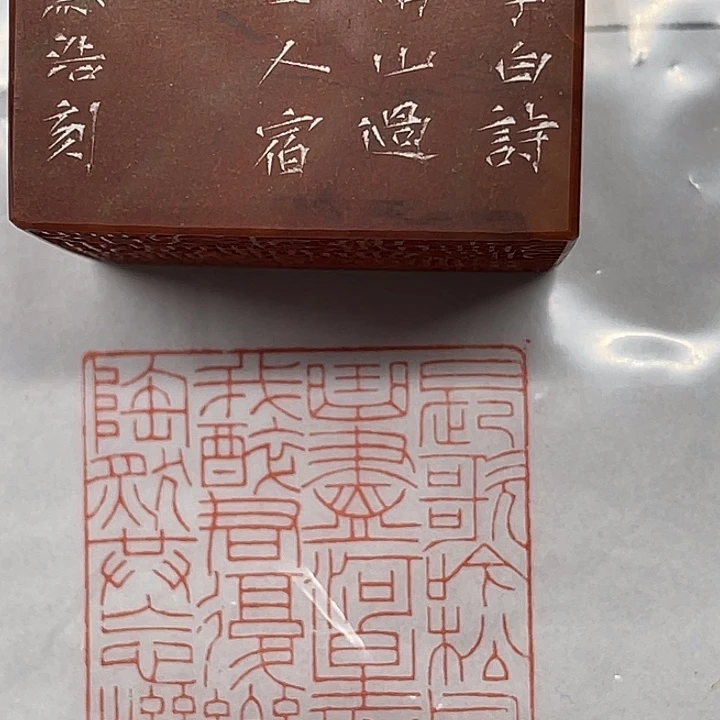 李白詩
南山過
山人宿
浩刻
長歌吟松
曲盡河星
我醉君復樂
陶然共忘機